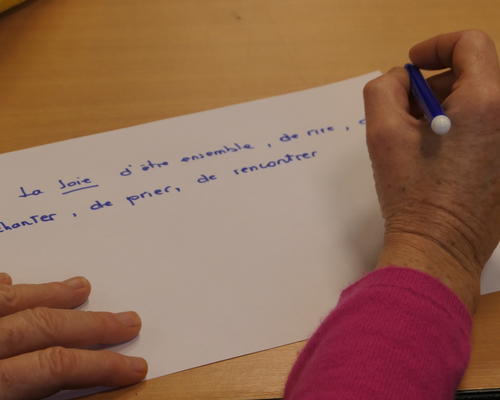 La Joie d'être ensemble, de rire,
chanter, de prier, de rencontrer